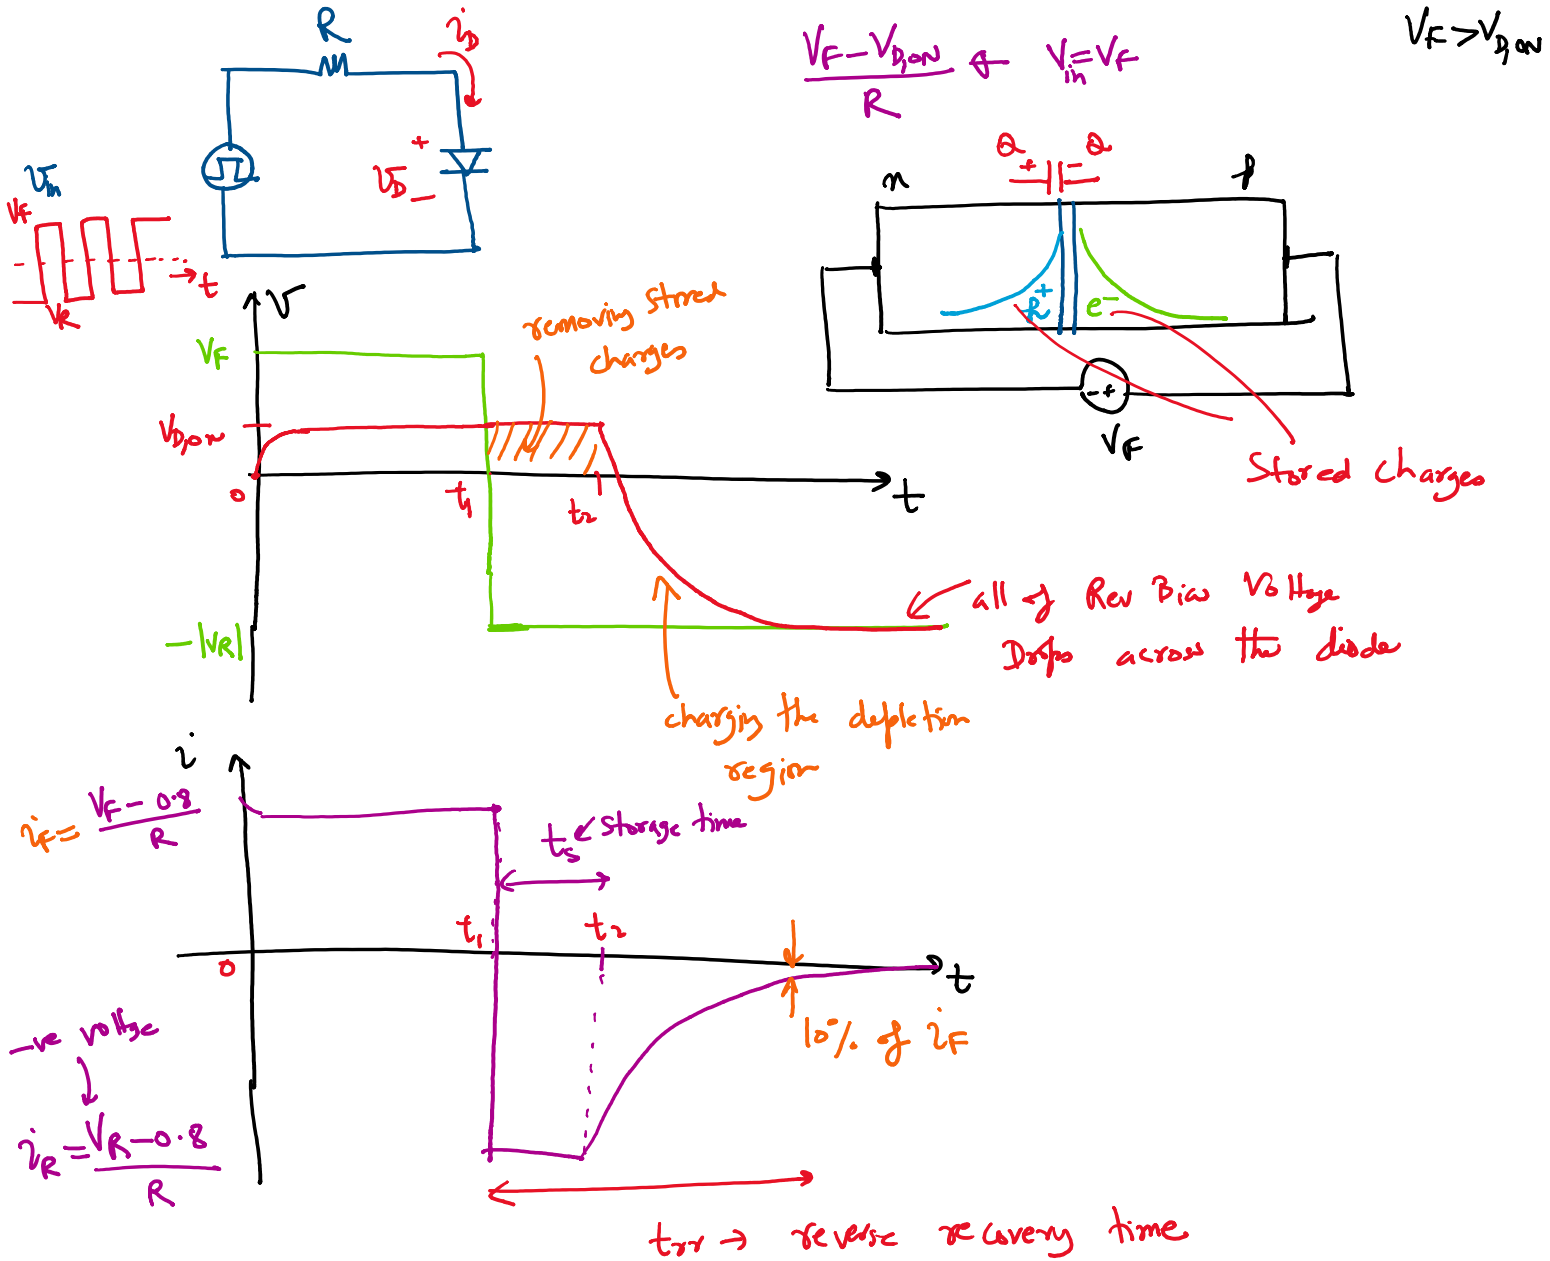 R
i_D
V_F - V_{D,ON} / R ← V_in = V_F
V_F > V_{D,ON}
+ Q
- Q
n
p
V_in
V_F
V_R
t
+
V_D
-
h+
e-
- +
V_F
Stored charges
V
V_F
V_{D,ON}
0
t_1
t_2
t
-|V_R|
removing stored
charges
all of Rev Bias Voltage
Drops across the diode
charging the depletion
region
i
i_F = V_F - 0.8 / R
t_s ← Storage time
t_1
t_2
0
t
10% of i_F
-ve voltge
i_R = V_R - 0.8 / R
t_rr → reverse recovery time